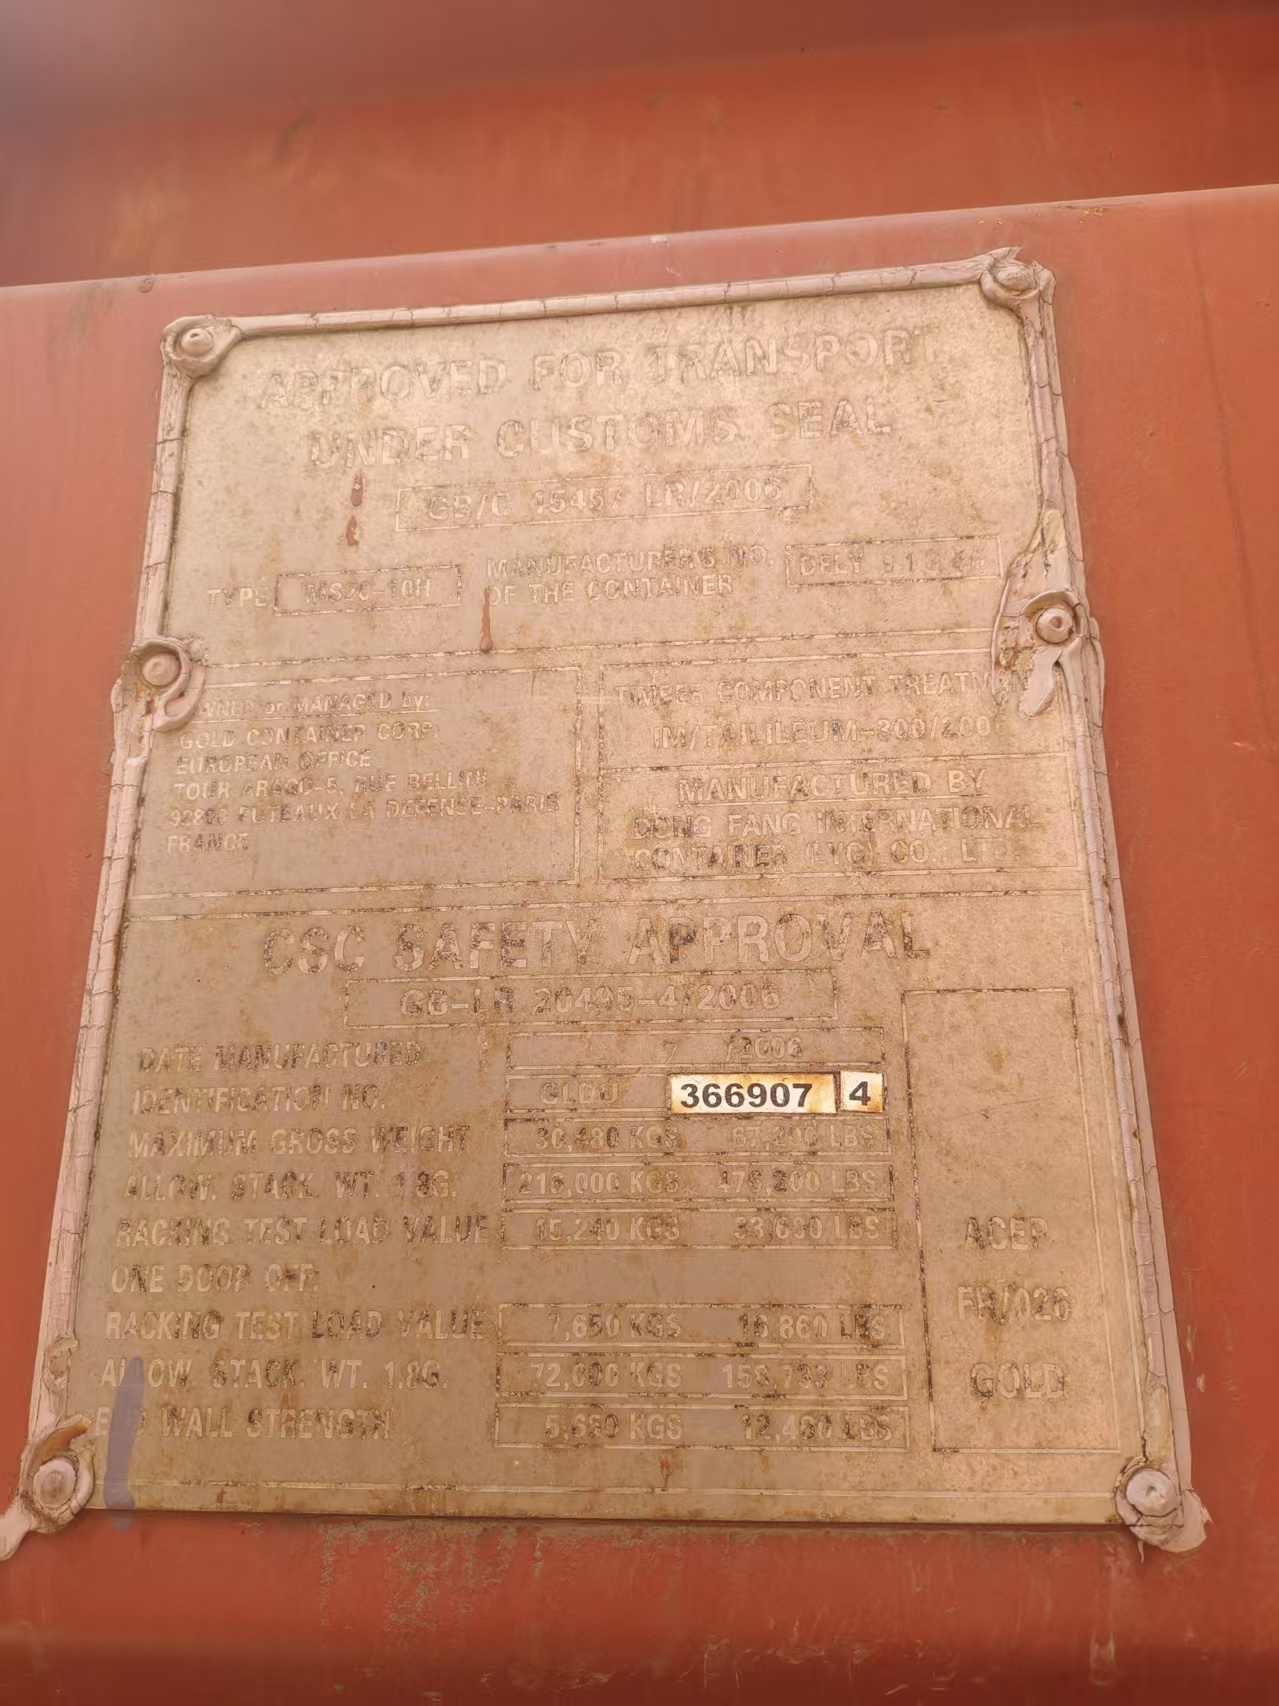 APPROVED FOR TRANSPORT
UNDER CUSTOMS SEAL
GB/C 15457 LR/2006
TYPE MS20-10H MANUFACTURER'S NO. OF THE CONTAINER DFLY
OWNED or MANAGED by:
GOLD CONTAINER CORP.
EUROPEAN OFFICE
TOUR ARAGO-5, RUE BELLINI
92806 PUTEAUX LA DEFENSE-PARIS
FRANCE
TIMBER COMPONENT TREATMENT
IM/TAILILEUM-300/2006
MANUFACTURED BY
DONG FANG INTERNATIONAL
CONTAINER (LYG) CO., LTD
CSC SAFETY APPROVAL
GB-LR 20495-4/2006
DATE MANUFACTURED 7 /2006
IDENTIFICATION NO. GLDU 366907 4
MAXIMUM GROSS WEIGHT 30,480 KGS 67,200 LBS
ALLOW. STACK. WT. 1.8G. 216,000 KGS 476,200 LBS
RACKING TEST LOAD VALUE 15,240 KGS 33,600 LBS
ONE DOOR OFF:
RACKING TEST LOAD VALUE 7,650 KGS 16,860 LBS
ALLOW. STACK. WT. 1.8G. 72,000 KGS 158,733 LBS
END WALL STRENGTH 5,650 KGS 12,460 LBS
ACEP
FR/026
GOLD